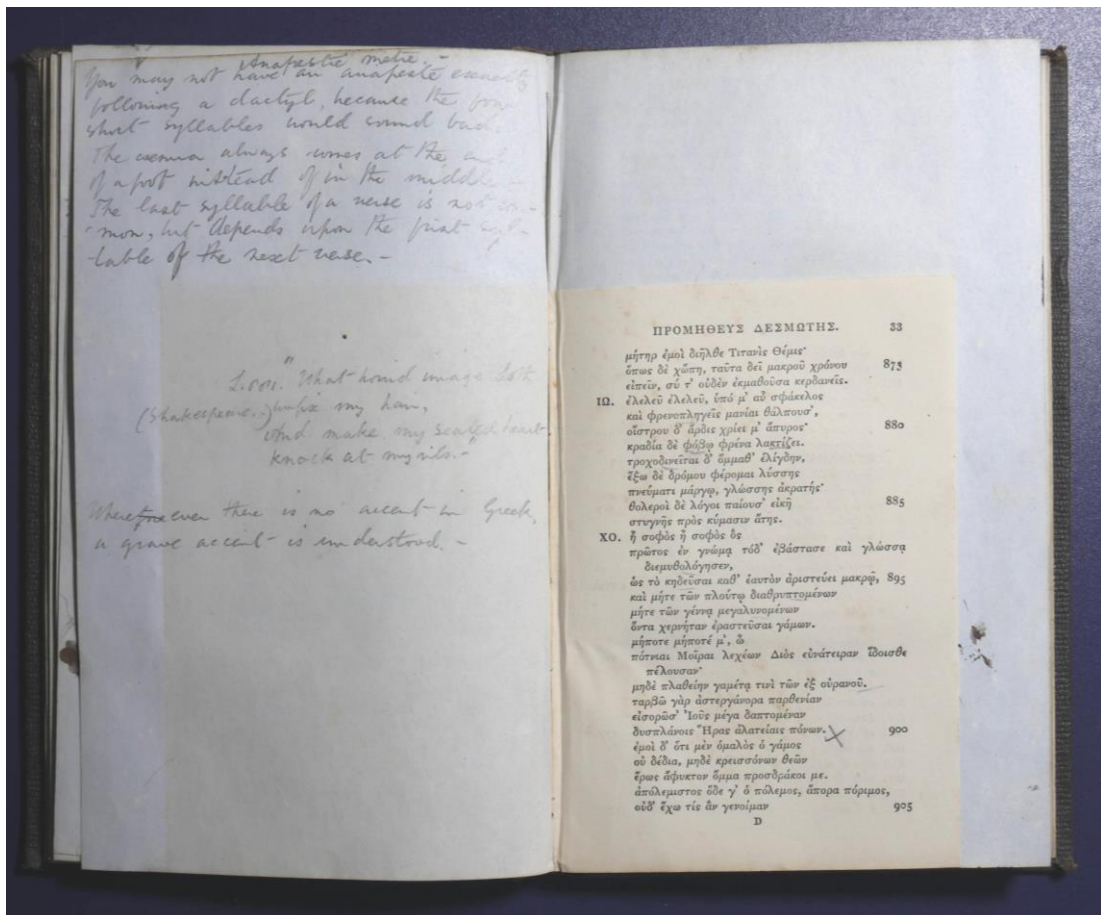 Anapestic metre. -
You may not have an anapeste exactly
following a dactyl, because the four
short syllables would sound bad.
The cæsura always comes at the end
of a foot instead of in the middle -
The last syllable of a verse is not com-
-mon, but depends upon the first syl-
-lable of the next verse. -
"What horrid image doth
(Shakespeare.) unfix my hair,
And make my seated heart
knock at my ribs. -
Wherefore ever there is no accent in Greek,
a grave accent is understood. -
ΠΡΟΜΗΘΕΥΣ ΔΕΣΜΩΤΗΣ. 33
μήτηρ ἐμοὶ διῆλθε Τιτανὶς Θέμις·
ὅπως δὲ χὤπη, ταῦτα δεῖ μακροῦ χρόνου 875
εἰπεῖν, σύ τ' οὐδὲν ἐκμαθοῦσα κερδανεῖς.
ΙΩ. ἐλελεῦ ἐλελεῦ, ὑπό μ' αὖ σφάκελος
καὶ φρενοπληγεῖς μανίαι θάλπουσ',
οἴστρου δ' ἄρδις χρίει μ' ἄπυρος· 880
κραδία δὲ φόβῳ φρένα λακτίζει.
τροχοδινεῖται δ' ὄμμαθ' ἑλίγδην,
ἔξω δὲ δρόμου φέρομαι λύσσης
πνεύματι μάργῳ, γλώσσης ἀκρατής·
θολεροὶ δὲ λόγοι παίουσ' εἰκῆ 885
στυγνῆς πρὸς κύμασιν ἄτης.
ΧΟ. ἦ σοφὸς ἦ σοφὸς ὃς
πρῶτος ἐν γνώμᾳ τόδ' ἐβάστασε καὶ γλώσσᾳ
διεμυθολόγησεν,
ὡς τὸ κηδεῦσαι καθ' ἑαυτὸν ἀριστεύει μακρῷ, 895
καὶ μήτε τῶν πλούτῳ διαθρυπτομένων
μήτε τῶν γέννᾳ μεγαλυνομένων
ὄντα χερνήταν ἐραστεῦσαι γάμων.
μήποτε μήποτέ μ', ὦ
πότνιαι Μοῖραι λεχέων Διὸς εὐνάτειραν ἴδοισθε
πέλουσαν·
μηδὲ πλαθείην γαμέτᾳ τινὶ τῶν ἐξ οὐρανοῦ.
ταρβῶ γὰρ ἀστεργάνορα παρθενίαν
εἰσορῶσ' Ἰοῦς μέγα δαπτομέναν
δυσπλάνοις Ἥρας ἀλατείαις πόνων. 900
ἐμοὶ δ' ὅτι μὲν ὁμαλὸς ὁ γάμος
οὐ δέδια, μηδὲ κρεισσόνων θεῶν
ἔρως ἄφυκτον ὄμμα προσδράκοι με.
ἀπόλεμιστος ὅδε γ' ὁ πόλεμος, ἄπορα πόριμος,
οὐδ' ἔχω τίς ἂν γενοίμαν 905
D